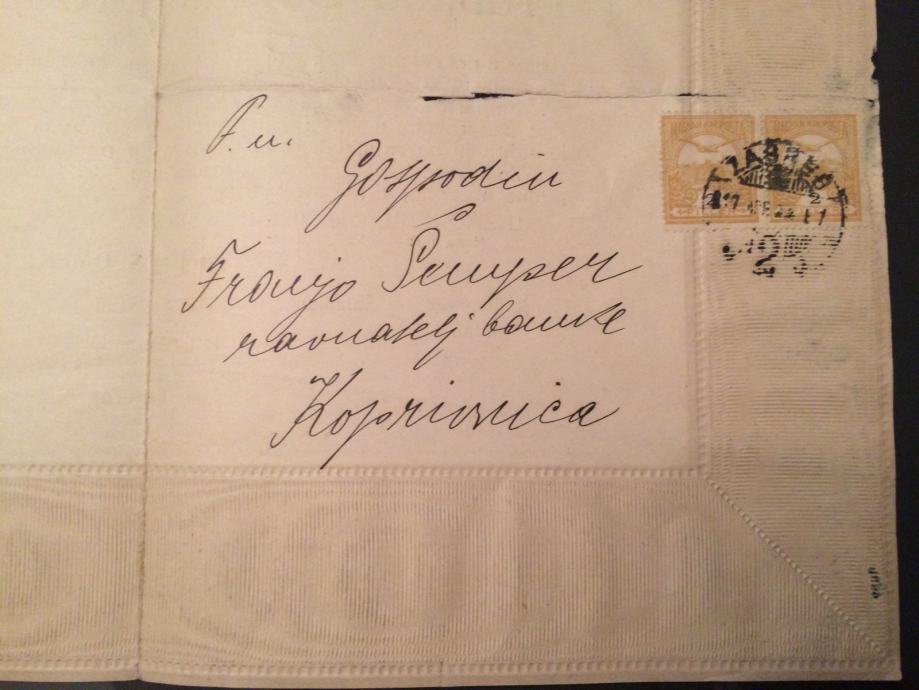 P. n.
Gospodin
Franjo Šemper
ravnatelj banke
Koprivnica
ZAGREB